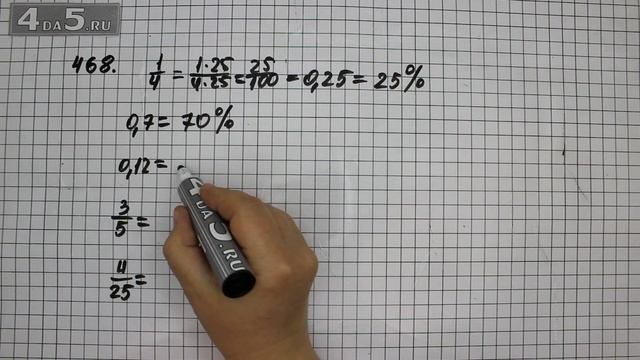 4ДА5.RU
468. 1/4 = 1·25/4·25 = 25/100 = 0,25 = 25%
0,7 = 70%
0,12 =
3/5 =
4/25 =
4ДА5.RU